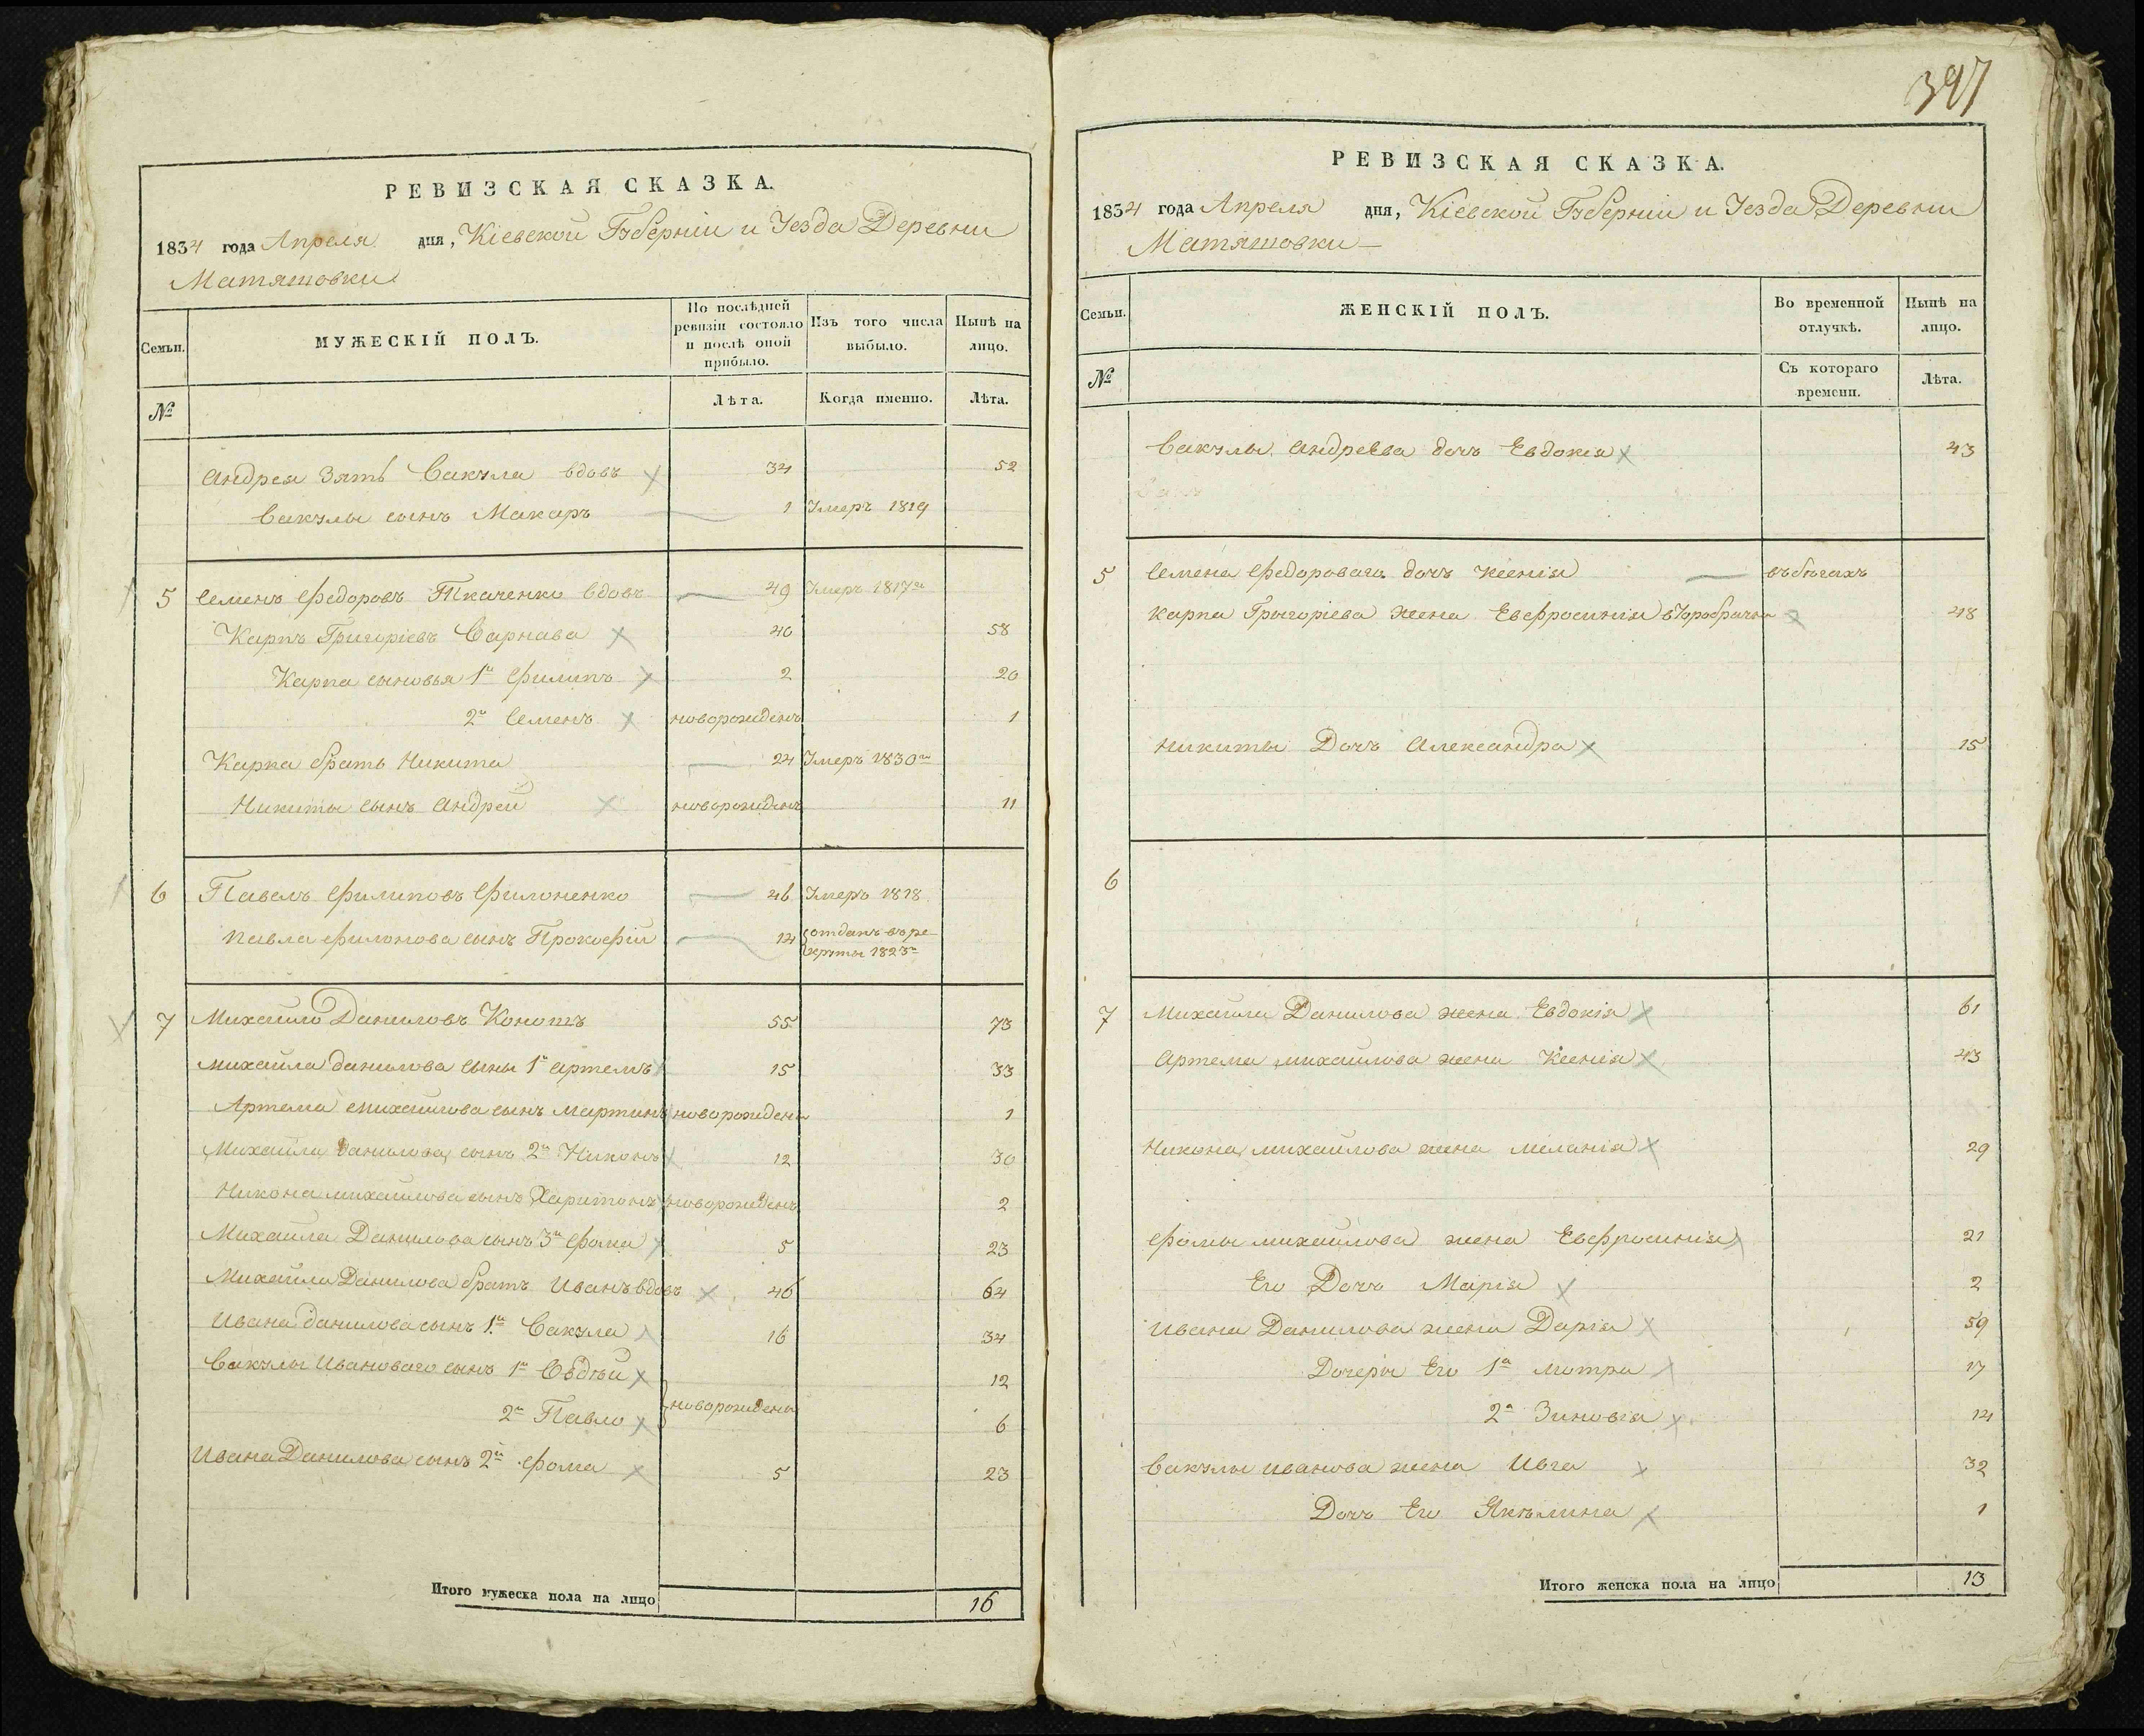 397
РЕВИЗСКАЯ СКАЗКА.
1834 года Апреля дня, Кіевской Губерніи и Уезда Деревни
Матяшовки
Семьи.
МУЖЕСКІЙ ПОЛЪ.
По послѣдней ревизіи состояло и послѣ оной прибыло.
Изъ того числа выбыло.
Нынѣ на лицо.
№
Лѣта.
Когда именно.
Лѣта.
Андрея Зять Вакула вдовъ 34 52
Вакулы сынъ Макаръ 1 Умеръ 1819
5 Семенъ Федоровъ Ткаченко вдовъ 49 Умеръ 1817го
Карпъ Григоріевъ Сарнава 40 58
Карпа сыновья 1й Филипъ 2 20
2й Семенъ новорожденъ 1
Карпа братъ Никита 24 Умеръ 1830го
Никиты сынъ Андрей новорожденъ 11
6 Павелъ Филиповъ Филоненко 46 Умеръ 1818
Павла Филонова сынъ Прокофій 14 отданъ въ ре-
круты 1823го
7 Михайло Даниловъ Конотъ 55 73
Михайла Данилова сыны 1й Артемъ 15 33
Артема Михайлова сынъ Мартинъ новорожденъ 1
Михайла Данилова сынъ 2й Никонъ 12 30
Никона Михайлова сынъ Харитонъ новорожденъ 2
Михайла Данилова сынъ 3й Фома 5 23
Михайла Данилова братъ Иванъ вдовъ 46 64
Ивана Данилова сынъ 1й Вакула 16 34
Вакулы Ивановаго сынъ 1й Овдѣй 12
новорождены
2й Павло 6
Ивана Данилова сынъ 2й Фома 5 23
Итого мужеска пола на лицо 16
РЕВИЗСКАЯ СКАЗКА.
1834 года Апреля дня, Кіевской Губерніи и Уезда Деревни
Матяшовки
Семьи.
ЖЕНСКІЙ ПОЛЪ.
Во временной отлучкѣ.
Нынѣ на лицо.
№
Съ котораго времени.
Лѣта.
Вакулы Андреева дочъ Евдокія 43
5 Семена Федороваго дочъ Ксенія въ бѣгахъ
Карпа Григоріева жена Евфросинія второбрачна 48
Никиты Дочъ Александра 15
6
7 Михайла Данилова жена Евдокія 61
Артема Михайлова жена Ксенія 43
Никона Михайлова жена Меланія 29
Фомы Михайлова жена Евфросинія 21
Его Дочъ Марія 2
Ивана Данилова жена Дарія 59
Дочери Его 1а Мотра 17
2а Зиновія 14
Вакулы Иванова жена Ивга 32
Дочъ Его Якилина 1
Итого женска пола на лицо 13